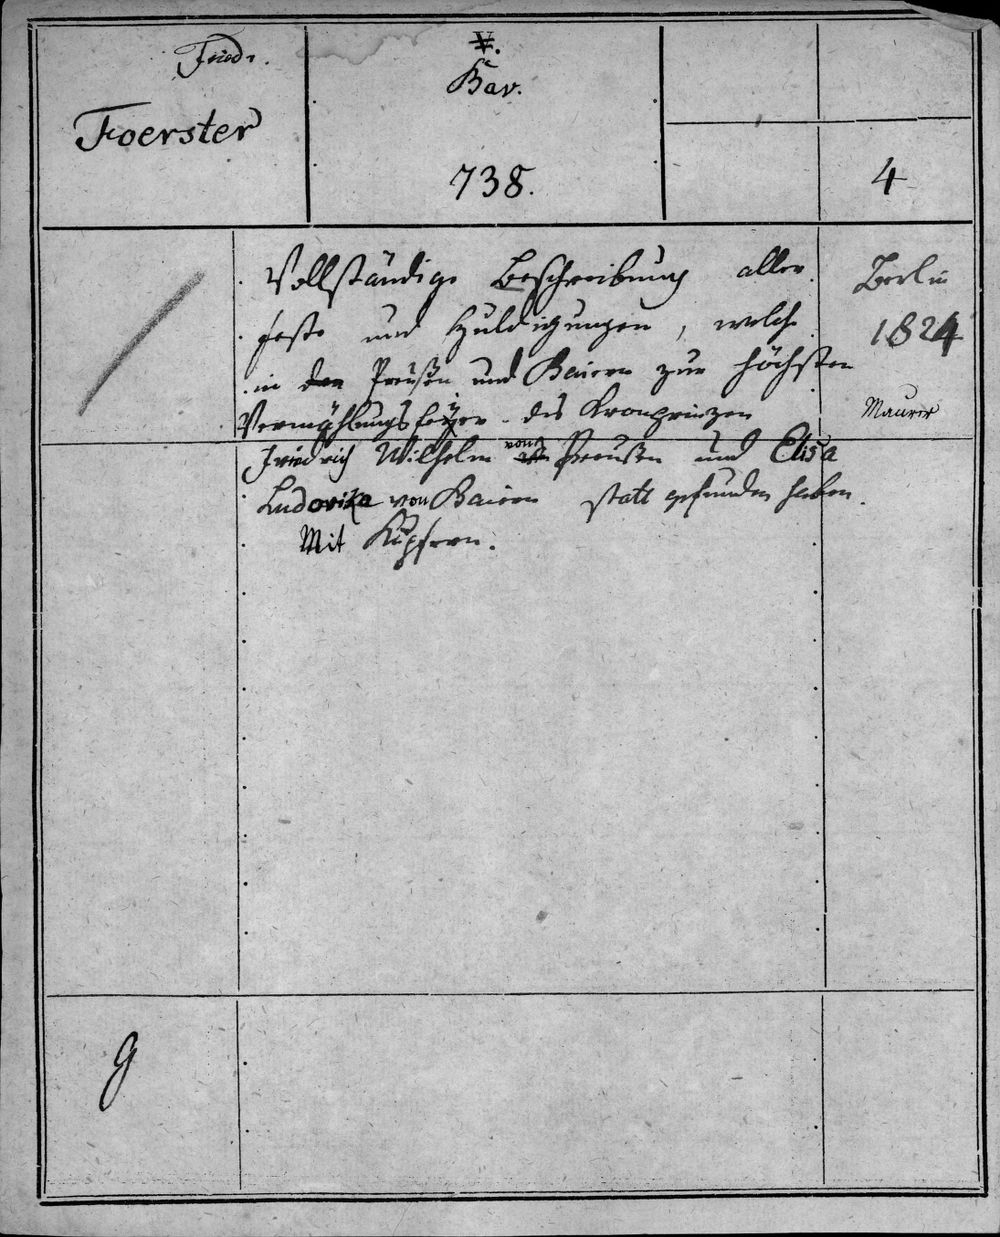 Friedr.
Foerster
V.
Bav.
738.
4
Vollständige Beschreibung aller
Feste und Huldigungen, welche
in den Preußen und Baiern zur höchsten
Vermählungsfeyer des Kronprinzen
Friedrich Wilhelm von Preußen und Elisa
Ludovika von Baiern statt gefunden haben.
Mit Kupfern.
Berlin
1824
Maurer
g